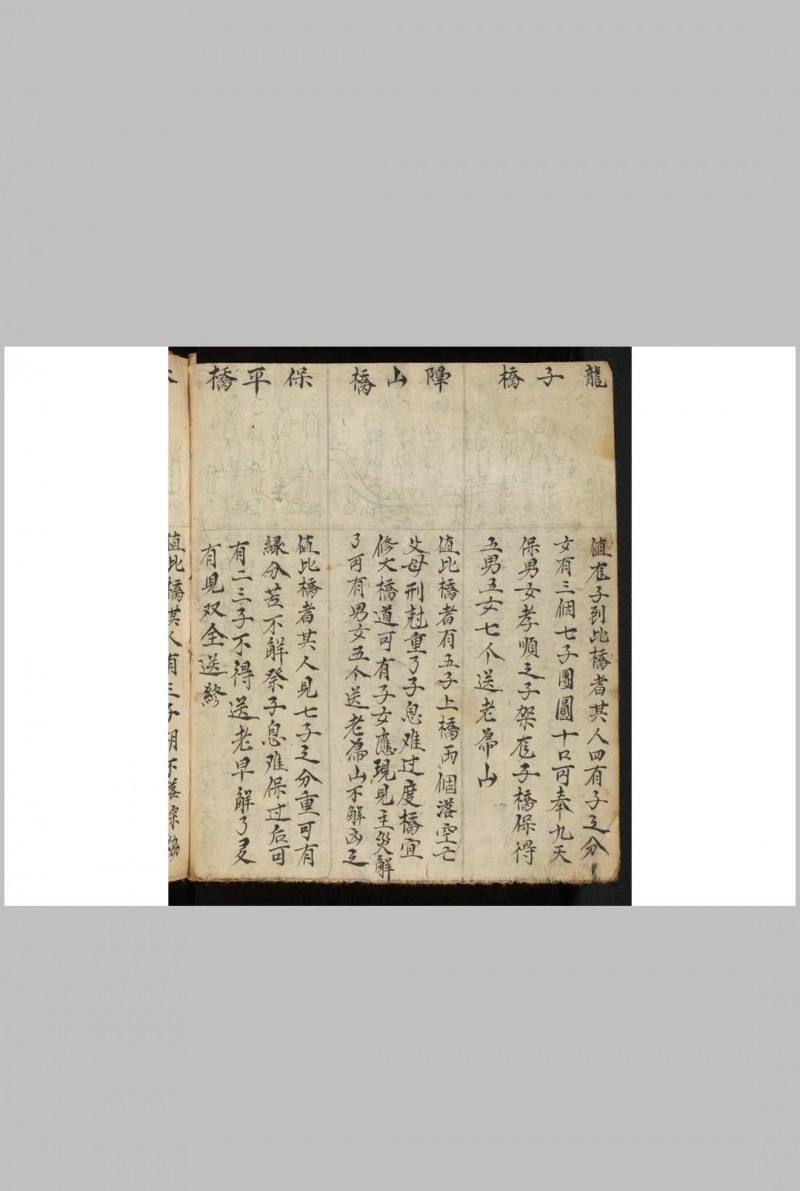 龍子橋
值庖子到比橋者其人四有子之分
女有三個七子團圓十口可奉九天
保男女孝順之子架庖子橋保得
五男五女七个送老帰山
陣山橋
值比橋者有五子上橋两個落空亡
父母刑尅重了子息难过度橋宜
修大橋道可有子女應現見主災解
了可有男女五个送老帰山不解凶之
保平橋
值比橋者其人見七子之分重可有
緣分苦不解祭子息难保过后可
有二三子不得送老早解了灵
有見双全送終
值比橋其人有三子